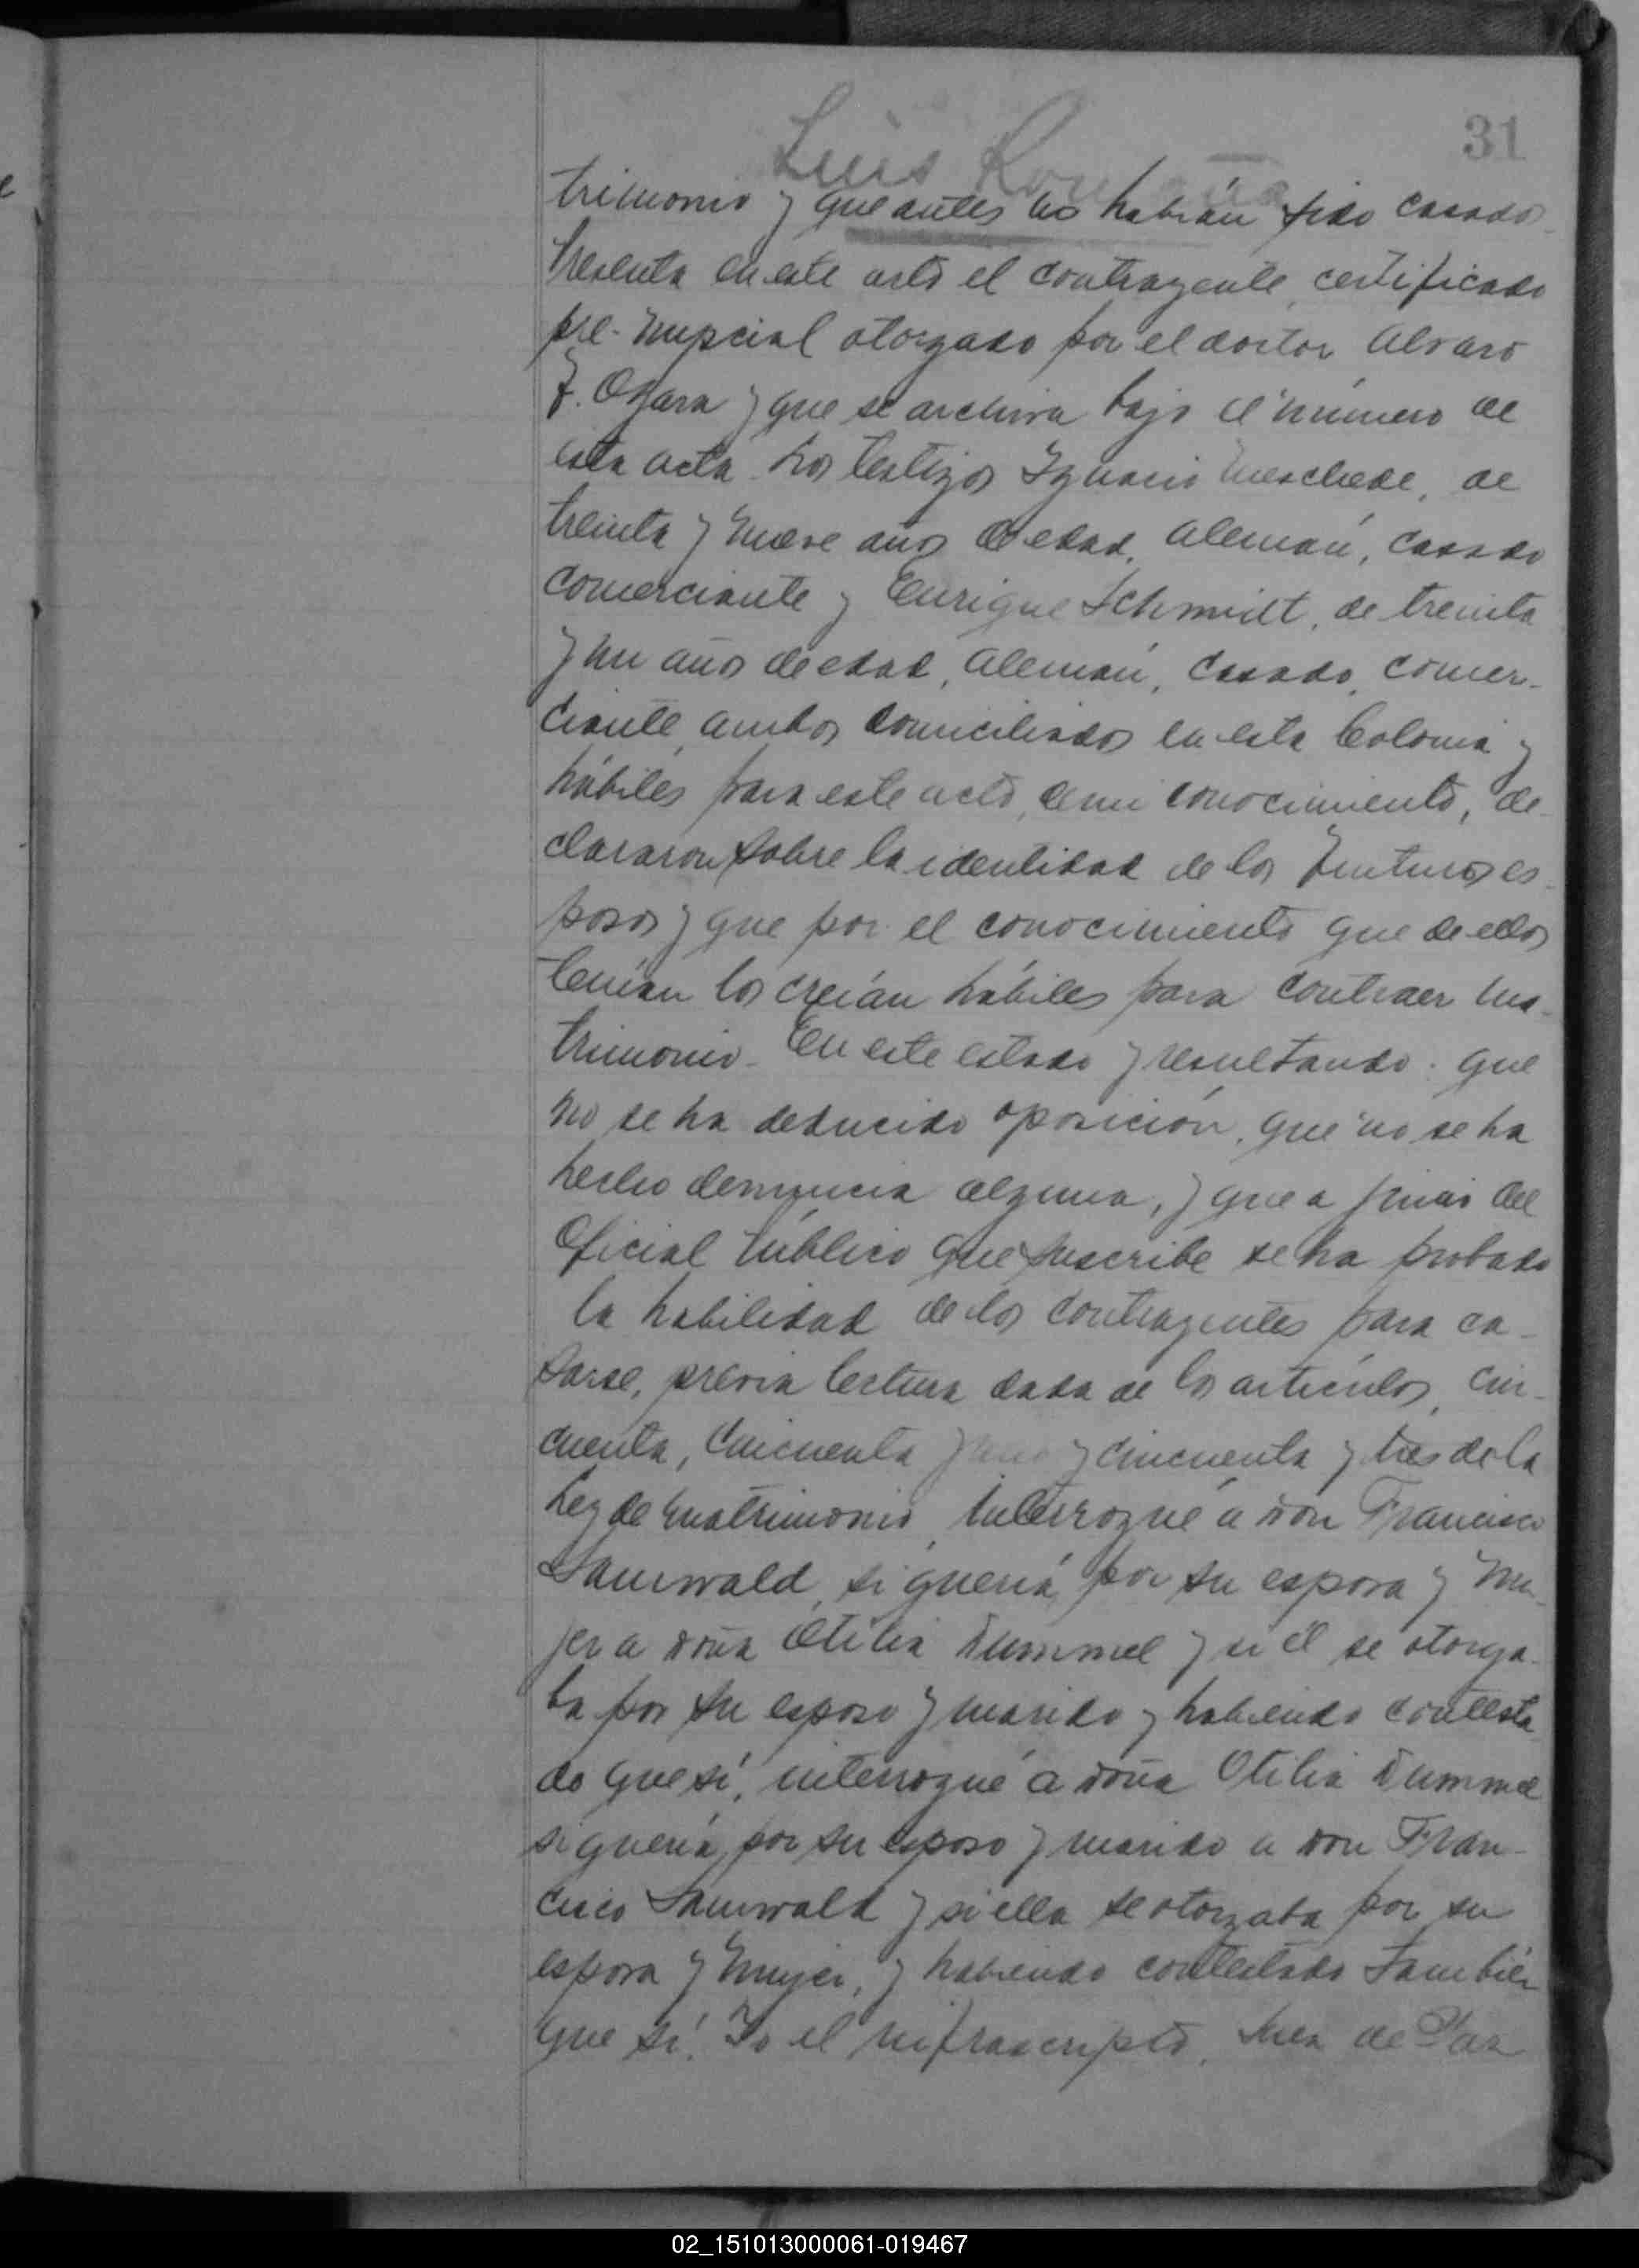 31
Luis
trimonio y que antes no habían sido casados.
Presenta en este acto el contrayente, certificado
pre-nupcial otorgado por el doctor Alvaro
F. Ogara y que se archiva bajo el número de
esta acta. Los testigos Ignacio Meschede, de
treinta y nueve años de edad, alemán, casado
comerciante y Enrique Schmidt, de treinta
y un años de edad, alemán, casado, comer-
ciante, ambos domiciliados en esta Colonia y
hábiles para este acto, de mi conocimiento, de-
clararon sobre la identidad de los futuros es-
posos y que por el conocimiento que de ellos
tenían los creían hábiles para contraer ma-
trimonio. En este estado y resultando: que
no se ha deducido oposición, que no se ha
hecho denuncia alguna, y que a juicio del
Oficial Público que suscribe se ha probado
la habilidad de los contrayentes para ca-
sarse, previa lectura dada de los artículos, cin-
cuenta, cincuenta y uno y cincuenta y tres de la
Ley de Matrimonio, interrogué a don Francisco
Sauerwald, si quería por su esposa y mu-
jer a doña Otilia Dummel y si él se otorga-
ba por su esposo y marido y habiendo contesta
do que sí, interrogué a doña Otilia Dummel
si quería por su esposo y marido a don Fran-
cisco Sauerwald y si ella se otorgaba por su
esposa y mujer, y habiendo contestado también
que sí, Yo el infrascripto, Juez de Paz
02_151013000061-019467